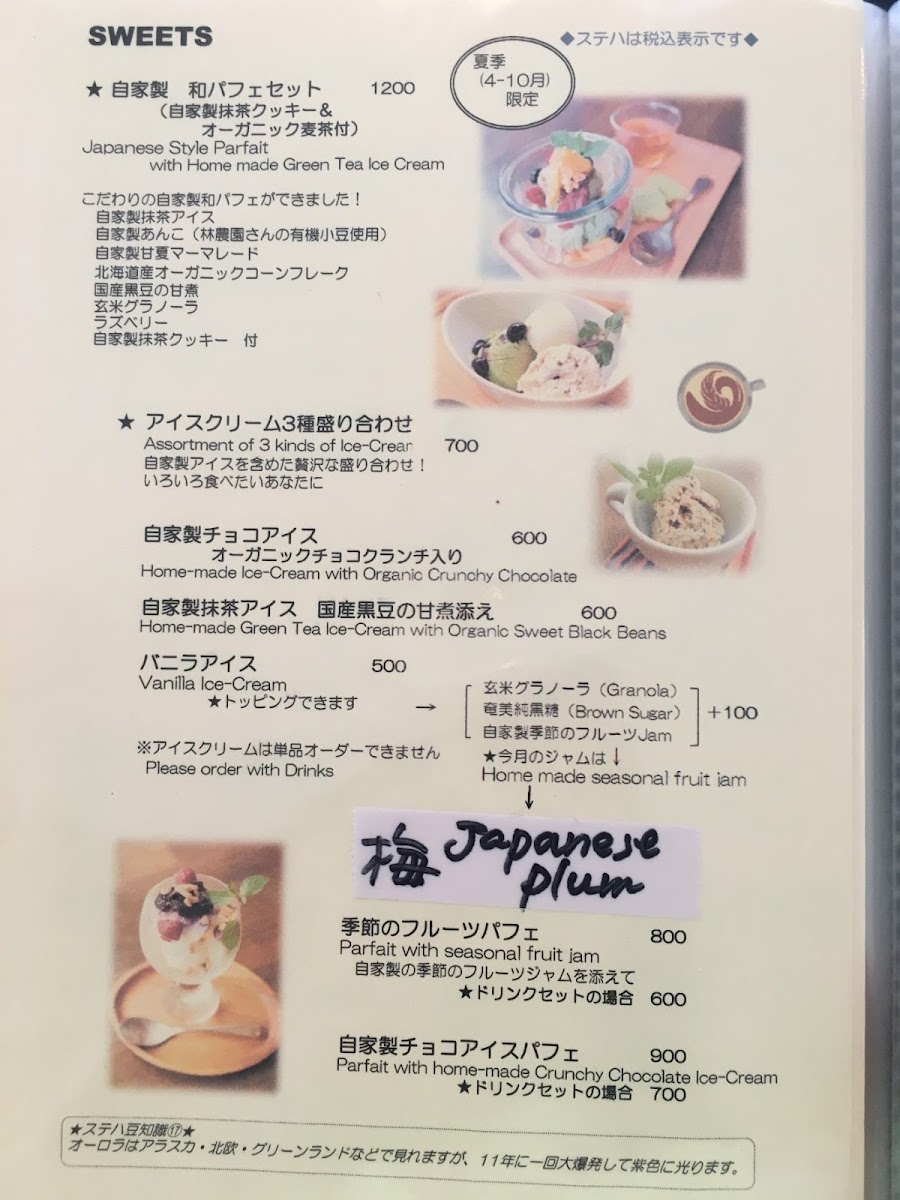 SWEETS
◆ステハは税込表示です◆
夏季
(4-10月)
限定
★ 自家製　和パフェセット　1200
（自家製抹茶クッキー＆
オーガニック麦茶付）
Japanese Style Parfait
with Home made Green Tea Ice Cream
こだわりの自家製和パフェができました！
自家製抹茶アイス
自家製あんこ（林農園さんの有機小豆使用）
自家製甘夏マーマレード
北海道産オーガニックコーンフレーク
国産黒豆の甘煮
玄米グラノーラ
ラズベリー
自家製抹茶クッキー　付
★ アイスクリーム3種盛り合わせ
Assortment of 3 kinds of Ice-Crear　700
自家製アイスを含めた贅沢な盛り合わせ！
いろいろ食べたいあなたに
自家製チョコアイス　600
オーガニックチョコクランチ入り
Home-made Ice-Cream with Organic Crunchy Chocolate
自家製抹茶アイス　国産黒豆の甘煮添え　600
Home-made Green Tea Ice-Cream with Organic Sweet Black Beans
バニラアイス　500
Vanilla Ice-Cream
★トッピングできます　→
玄米グラノーラ（Granola）
奄美純黒糖（Brown Sugar）
自家製季節のフルーツJam
＋100
★今月のジャムは↓
Home made seasonal fruit jam
※アイスクリームは単品オーダーできません
Please order with Drinks
↓
梅 Japanese
plum
季節のフルーツパフェ　800
Parfait with seasonal fruit jam
自家製の季節のフルーツジャムを添えて
★ドリンクセットの場合　600
自家製チョコアイスパフェ　900
Parfait with home-made Crunchy Chocolate Ice-Cream
★ドリンクセットの場合　700
★ステハ豆知識⑰★
オーロラはアラスカ・北欧・グリーンランドなどで見れますが、11年に一回大爆発して紫色に光ります。